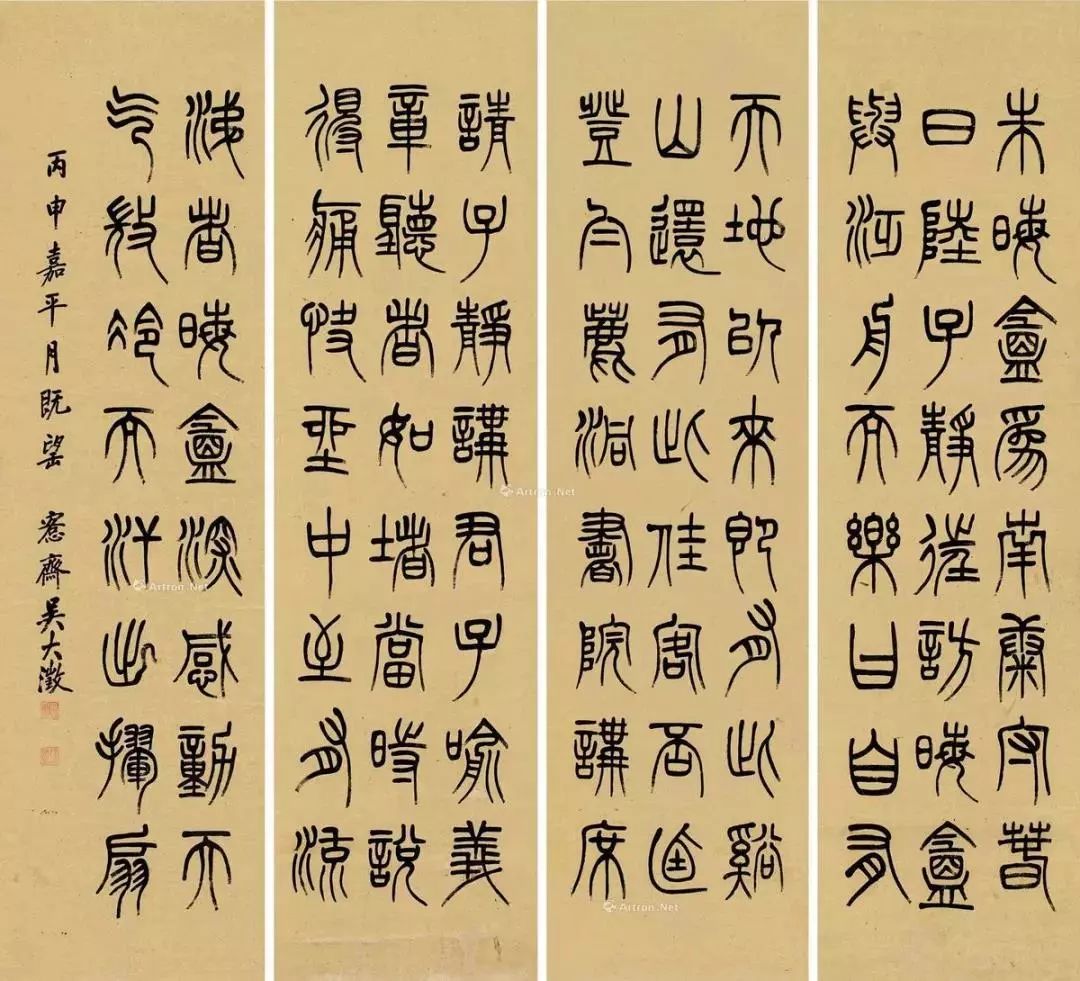 朱晦盦為南康守春
日陸子靜往訪晦盦
與泛舟而樂曰自有
天地以來即有此谿
山還有此佳客否迺
登白鹿洞書院講席
請子靜講君子喻義
章聽者如堵當時說
得痛快坐中至有流
涕者晦盦深感動天
气微冷而汗出揮扇
丙申嘉平月既望 愙齋吳大澂
Artron.Net
Artron.Net
Artron.Net